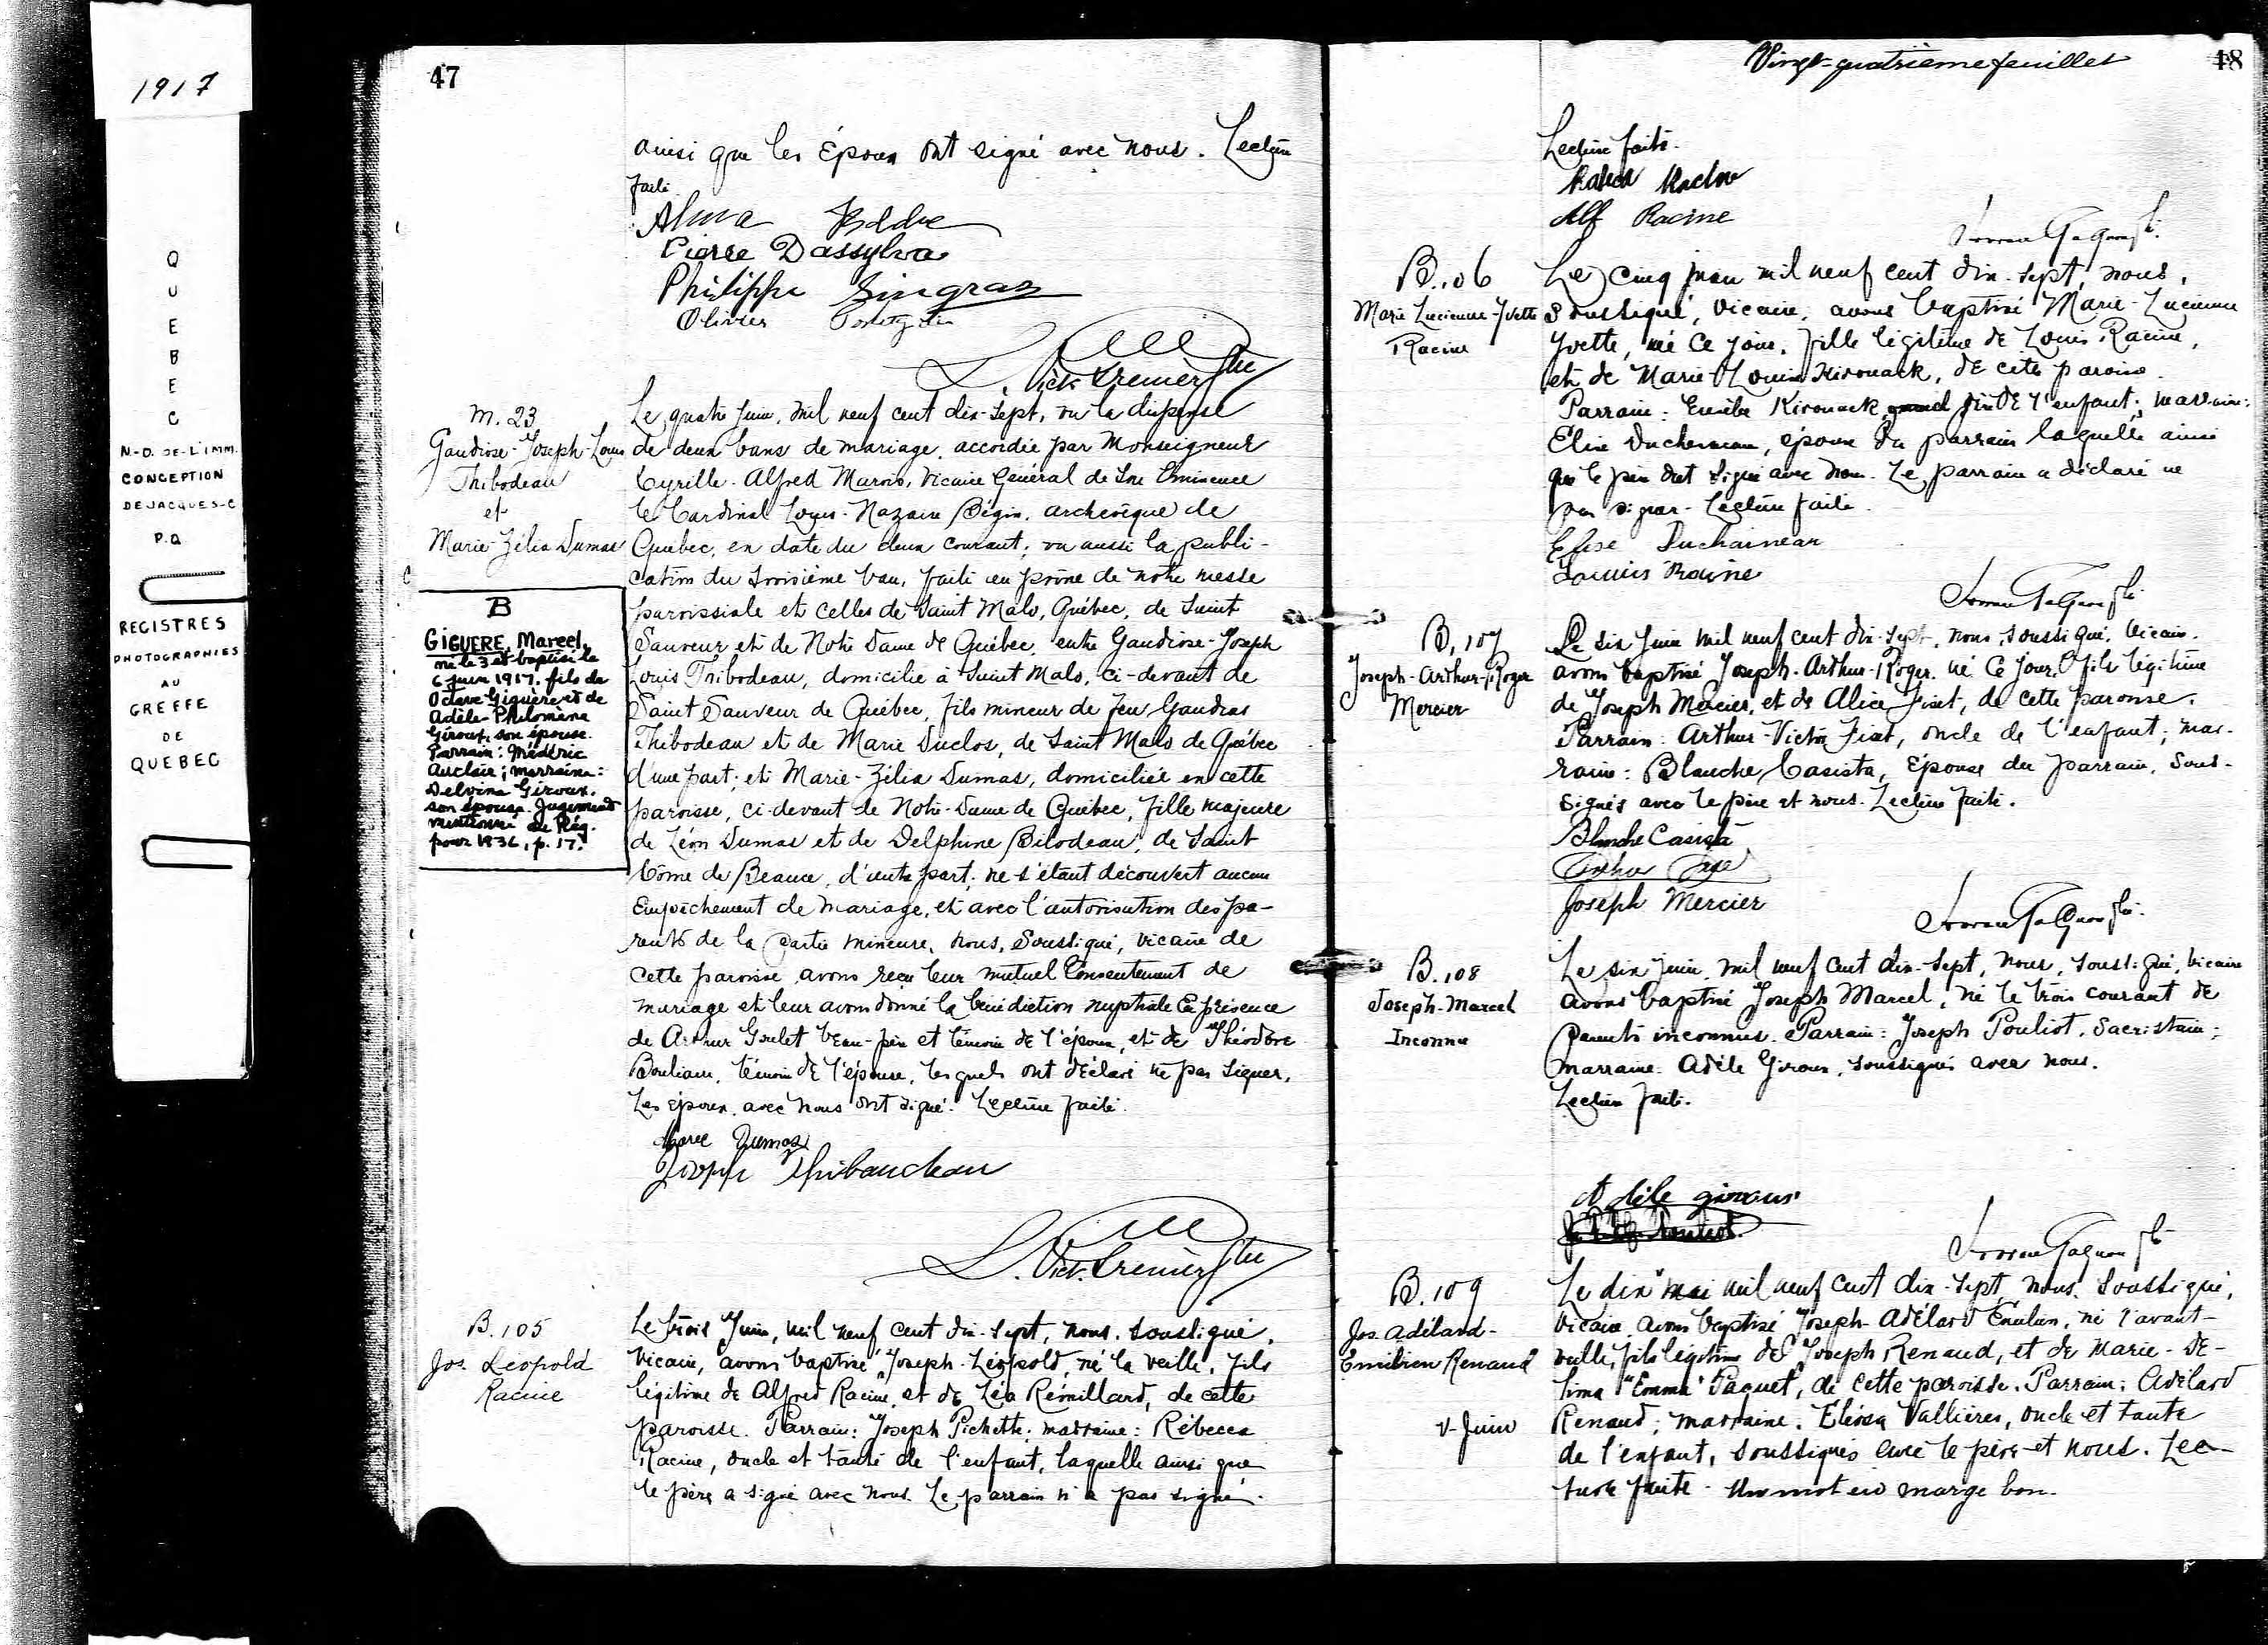 1917
QUEBEC
N.-D. DE-L'IMM.
CONCEPTION
DE JACQUES-C
P.Q
REGISTRES
PHOTOGRAPHIES
AU
GREFFE
DE
QUEBEC
47
ainsi que les Époux ont signé avec nous. Lecture
faite
Alma
Pierre Dassylva
Philippe Gingras
Olivier
L. Vict. Crenier Ptre
M. 23
Gaudiose-Joseph-Louis
Thibodeau
et
Marie-Zélia Dumas
Le quatre Juin, mil neuf cent dix-sept, vu la dispense
de deux bans de mariage, accordée par Monseigneur
Cyrille-Alfred Marois, Vicaire Général de Son Eminence
le Cardinal Louis-Nazaire Bégin, archevêque de
Québec, en date du deux courant; vu aussi la publi-
cation du troisième ban, faite au prône de notre messe
paroissiale et celles de Saint Malo, Québec, de Saint
Sauveur et de Notre Dame de Québec, entre Gaudiose-Joseph
Louis Thibodeau, domicilié à Saint Malo, ci-devant de
Saint Sauveur de Québec, fils mineur de feu Gaudias
Thibodeau et de Marie Duclos, de Saint Malo de Québec
d'une part; et Marie-Zélia Dumas, domiciliée en cette
paroisse, ci-devant de Notre-Dame de Québec, fille majeure
de Léon Dumas et de Delphine Bilodeau, de Saint
Côme de Beauce, d'autre part; ne s'étant découvert aucun
empêchement de mariage, et avec l'autorisation des pa-
rents de la partie mineure, nous, Soussigné, vicaire de
cette paroisse avons reçu leur mutuel Consentement de
mariage et leur avons donné la bénédiction nuptiale En présence
de Arthur Goulet beau-père et témoin de l'époux, et de Théodore
témoin de l'épouse, lesquels ont déclaré ne pas signer.
Les époux, avec nous ont signé. Lecture faite.
Dumas
Joseph Thibaudeau
L. Vict. Crenier Ptre
B
GIGUERE, Marcel,
né le 3 et baptisé le
6 juin 1917, fils de
Octave Giguère et de
Adèle-Philomène
Giroux, son épouse.
Parrain: Médéric
Auclair; marraine:
Delvina Giroux,
son épouse. Jugement
mentionné au Rég.
pour 1936, p. 17.
B. 105
Jos. Léopold
Racine
Le trois Juin, mil neuf cent dix-sept, nous, soussigné,
Vicaire, avons baptisé Joseph-Léopold, né la veille, fils
légitime de Alfred Racine, et de Léa Rémillard, de cette
paroisse. Parrain: Joseph Pichette; marraine: Rébecca
Racine, oncle et tante de l'enfant, laquelle ainsi que
le père a signé avec nous. Le parrain n'a pas signé.
Vingt-quatrième feuillet
48
Lecture faite.
Alf Racine
B. 106
Marie Lucienne-Yvette
Racine
Le cinq juin mil neuf cent dix-sept, nous,
Soussigné, Vicaire, avons baptisé Marie-Lucienne
Yvette, né ce jour, fille légitime de Louis Racine,
et de Marie-Louise Kirouack, de cette paroisse.
Parrain: Kirouack, grand père de l'enfant; marraine:
Elise Duchesneau, épouse du parrain laquelle ainsi
que le père ont signé avec nous. Le parrain a déclaré ne
pas signer. Lecture faite.
Elise Duchaineau
Louis Racine
B. 107
Joseph-Arthur-Roger
Mercier
Le six Juin mil neuf cent dix-sept, nous, soussigné, Vicaire,
avons baptisé Joseph-Arthur-Roger, né ce jour, fils légitime
de Joseph Mercier, et de Alice Fiset, de cette paroisse.
Parrain: Arthur-Victor Fiset, oncle de l'enfant; mar-
raine: Blanche Casista, Épouse du parrain, Sous-
signés avec le père et nous. Lecture faite.
Blanche Casista
Joseph Mercier
B. 108
Joseph-Marcel
Inconnu
Le six Juin, mil neuf cent dix-sept, nous, soussigné, Vicaire
avons baptisé Joseph Marcel, né le trois courant de
parents inconnus. Parrain: Joseph Pouliot, Sacristain;
marraine: Adèle Giroux, soussignés avec nous.
Lecture faite.
Adèle giroux
B. 109
Jos. Adélard-
Emilien Renaud
v-Juin
Le dix mai mil neuf cent dix-sept, nous, Soussigné,
Vicaire, avons baptisé Joseph-Adélard Emilien, né l'avant-
veille, fils légitime de Joseph Renaud, et de Marie-De-
lima "Emma" Paquet, de cette paroisse. Parrain: Adélard
Renaud; marraine: Vallières, oncle et tante
de l'enfant, soussignés avec le père et nous. Lec-
ture faite. Un mot en marge bon.